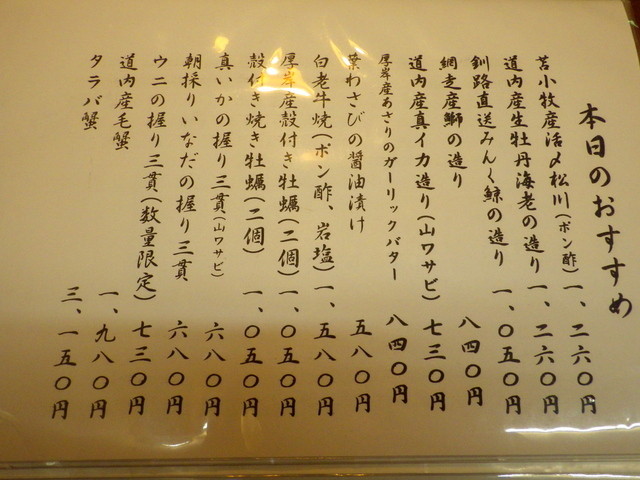 本日のおすすめ
苫小牧産活〆松川（ポン酢）一、二六〇円
道内産生牡丹海老の造り一、二六〇円
釧路直送みんく鯨の造り一、〇五〇円
網走産鰤の造り八四〇円
道内産真イカ造り（山ワサビ）七三〇円
厚岸産あさりのガーリックバター八四〇円
葉わさびの醤油漬け五八〇円
白老牛焼（ポン酢、岩塩）一、五八〇円
厚岸産殻付き牡蠣（二個）一、〇五〇円
殻付き焼き牡蠣（二個）一、〇五〇円
真いかの握り三貫（山ワサビ）六八〇円
朝採りいなだの握り三貫六八〇円
ウニの握り三貫（数量限定）七三〇円
道内産毛蟹一、九八〇円
タラバ蟹三、一五〇円